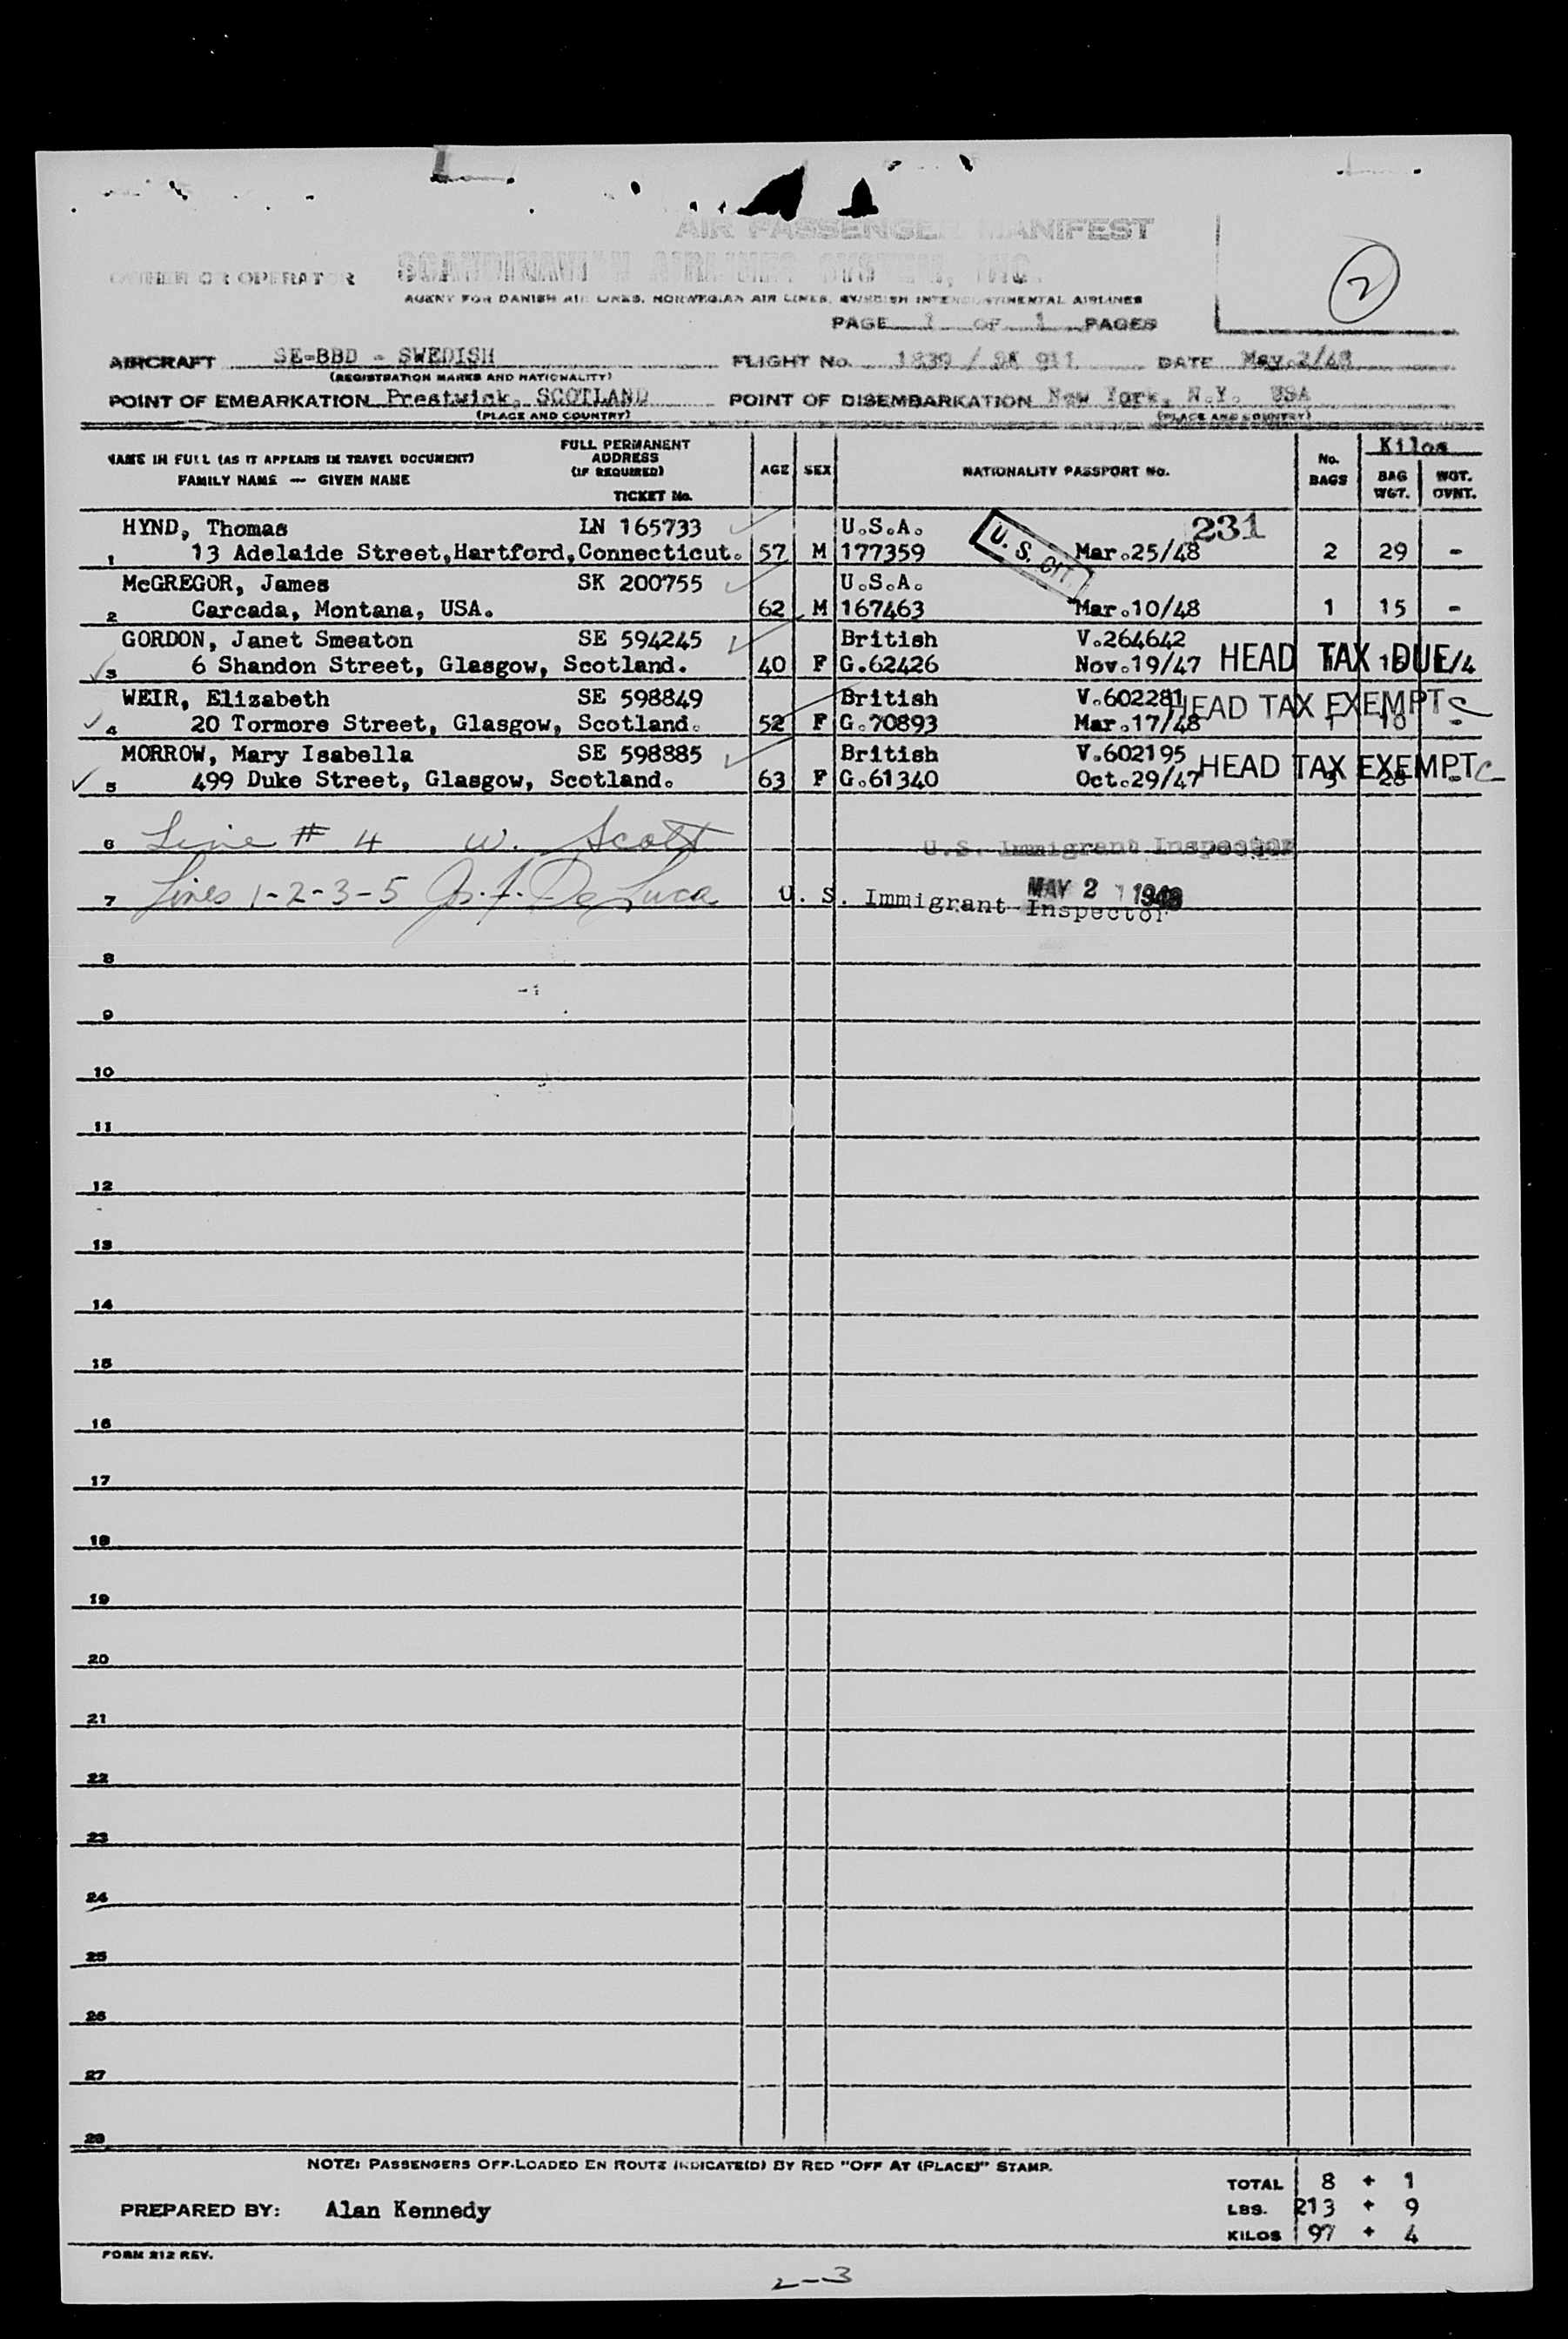 AIR PASSENGER MANIFEST
OWNER OR OPERATOR SCANDINAVIAN AIRLINES SYSTEM, INC.
AGENT FOR DANISH AIR LINES, NORWEGIAN AIR LINES, SWEDISH INTERCONTINENTAL AIRLINES
2
PAGE 1 OF 1 PAGES
AIRCRAFT SE-BBD - SWEDISH FLIGHT No. 1839 / SK 911 DATE May.2/48
(REGISTRATION MARKS AND NATIONALITY)
POINT OF EMBARKATION Prestwick, SCOTLAND POINT OF DISEMBARKATION New York, N.Y. USA
(PLACE AND COUNTRY) (PLACE AND COUNTRY)
NAME IN FULL (AS IT APPEARS IN TRAVEL DOCUMENT)
FAMILY NAME — GIVEN NAME
FULL PERMANENT
ADDRESS
(IF REQUIRED)
TICKET No.
AGE SEX NATIONALITY PASSPORT No. No. BAGS Kilos
BAG WGT. WGT. OVNT.
HYND, Thomas LN 165733 U.S.A. 231
1 13 Adelaide Street,Hartford,Connecticut. 57 M 177359 U. S. CIT. Mar.25/48 2 29 -
McGREGOR, James SK 200755 U.S.A.
2 Carcada, Montana, USA. 62 M 167463 Mar.10/48 1 15 -
GORDON, Janet Smeaton SE 594245 British V.264642
3 6 Shandon Street, Glasgow, Scotland. 40 F G.62426 Nov.19/47 HEAD TAX DUE 1/4
WEIR, Elizabeth SE 598849 British V.602281 HEAD TAX EXEMPT c
4 20 Tormore Street, Glasgow, Scotland. 52 F G.70893 Mar.17/48 1 10 -
MORROW, Mary Isabella SE 598885 British V.602195
5 499 Duke Street, Glasgow, Scotland. 63 F G.61340 Oct.29/47 HEAD TAX EXEMPT c 3 28 -
6 Line # 4 W. Scott U.S. Immigrant Inspector
7 Lines 1-2-3-5 J. De Luca U. S. Immigrant Inspector MAY 2 1948
8
9
10
11
12
13
14
15
16
17
18
19
20
21
22
23
24
25
26
27
28
NOTE: PASSENGERS OFF-LOADED EN ROUTE INDICATE(D) BY RED "OFF AT (PLACE)" STAMP.
TOTAL 8 + 1
PREPARED BY: Alan Kennedy LBS. 213 + 9
KILOS 97 + 4
FORM 212 REV.
2-3